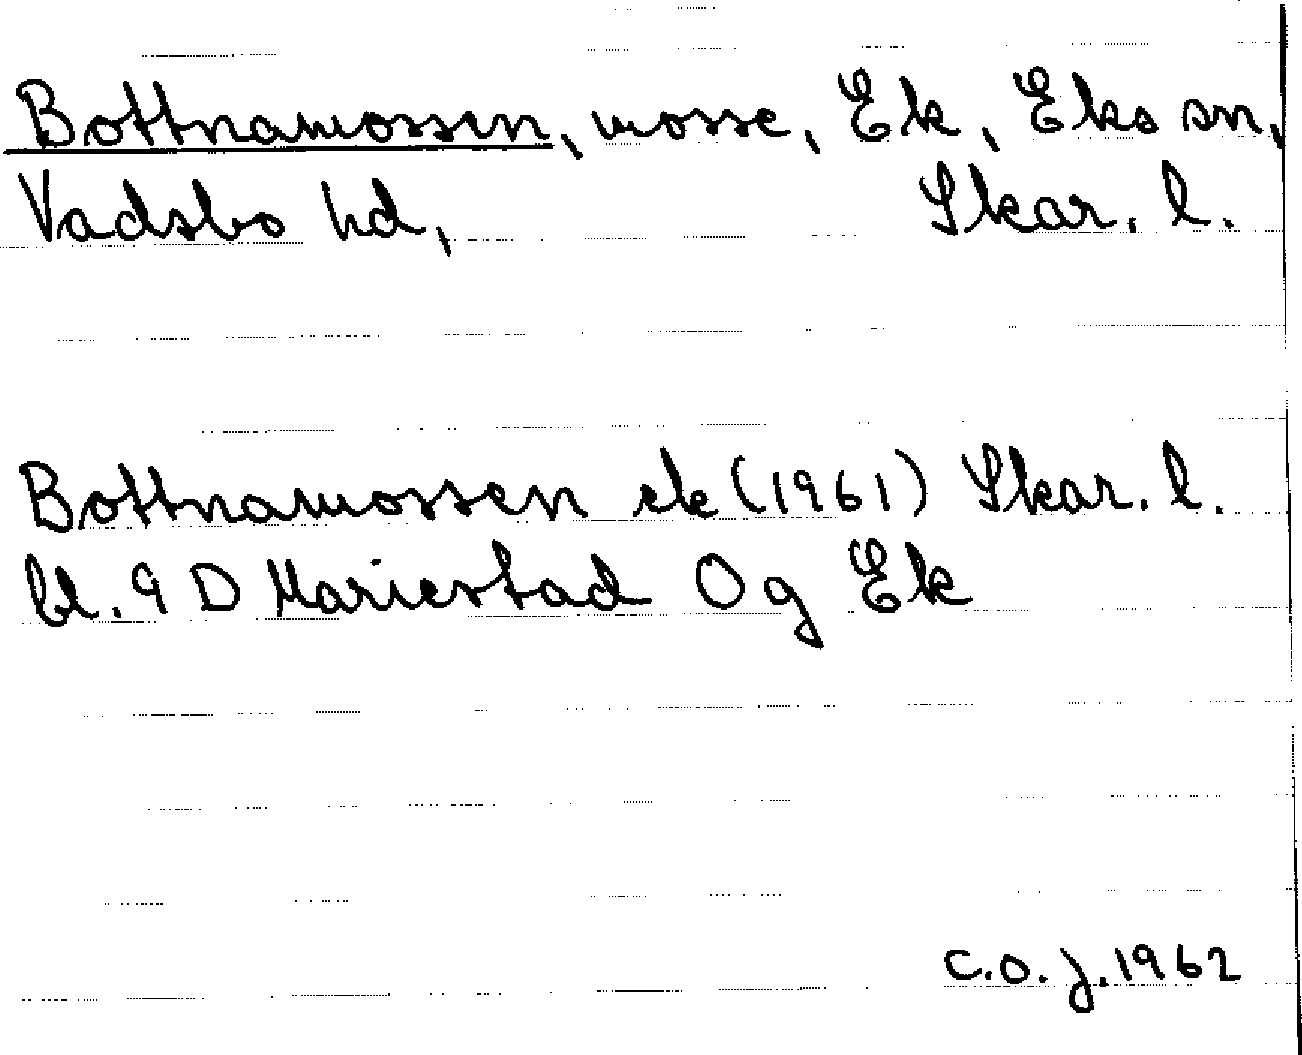 Bottnamossen, mosse, Ek, Eks sn,
Vadsbo hd, Skar. l.
Bottnamossen ek (1961) Skar. l.
bl. 9 D Mariestad Og Ek
C.O.J. 1962